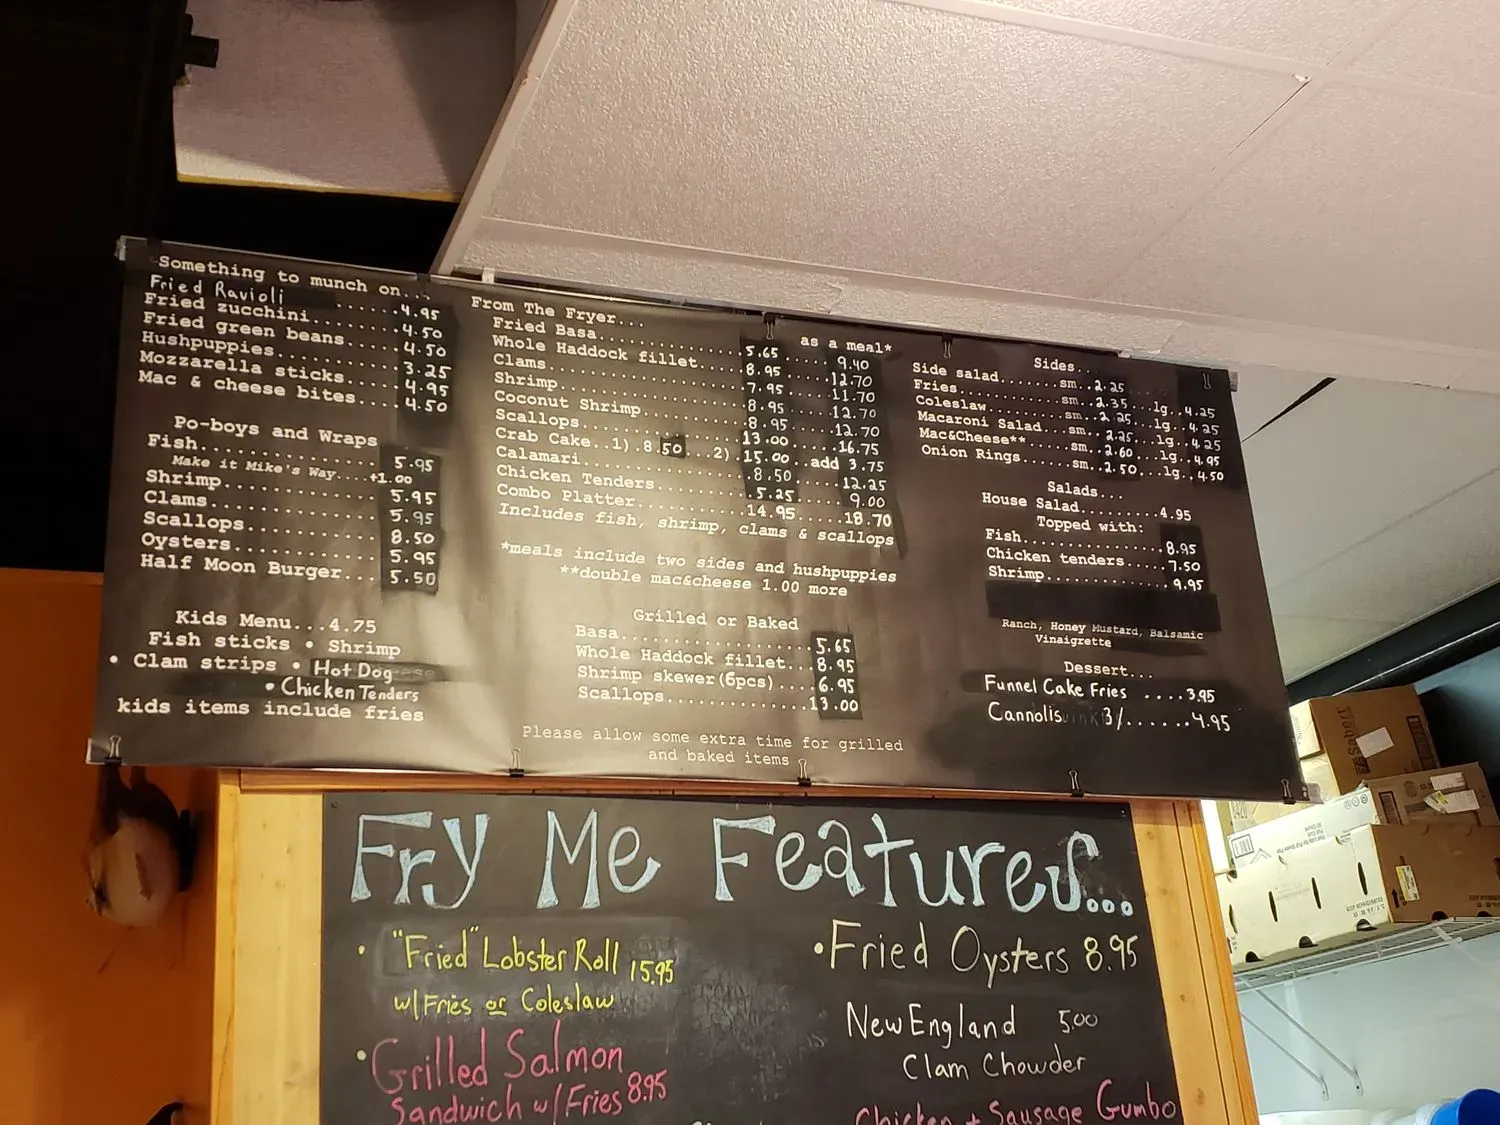 Something to munch on...
Fried Ravioli ......4.95
Fried zucchini........4.50
Fried green beans....4.50
Hushpuppies..........3.25
Mozzarella sticks....4.95
Mac & cheese bites...4.50
Po-boys and Wraps
Fish................5.95
Make it Mike's Way...+1.00
Shrimp..............5.95
Clams...............5.95
Scallops............8.50
Oysters.............5.95
Half Moon Burger...5.50
Kids Menu...4.75
Fish sticks • Shrimp
• Clam strips • Hot Dog
• Chicken Tenders
kids items include fries
From The Fryer...
as a meal*
Fried Basa..............5.65.....9.40
Whole Haddock fillet....8.95.....12.70
Clams...................7.95.....11.70
Shrimp..................8.95.....12.70
Coconut Shrimp..........8.95.....12.70
Scallops................13.00....16.75
Crab Cake..1).8.50...2).15.00..add 3.75
Calamari................8.50.....12.25
Chicken Tenders.........5.25.....9.00
Combo Platter...........14.95.....18.70
Includes fish, shrimp, clams & scallops
*meals include two sides and hushpuppies
**double mac&cheese 1.00 more
Grilled or Baked
Basa....................5.65
Whole Haddock fillet...8.95
Shrimp skewer(6pcs)....6.95
Scallops...............13.00
Please allow some extra time for grilled
and baked items
Sides...
Side salad.......sm..2.25
Fries............sm..2.35...lg..4.25
Coleslaw.........sm..2.25...lg..4.25
Macaroni Salad...sm..2.25...lg..4.25
Mac&Cheese**.....sm..2.60...lg..4.95
Onion Rings......sm..2.50...lg..4.50
Salads...
House Salad........4.95
Topped with:
Fish...............8.95
Chicken tenders.....7.50
Shrimp.............9.95
Ranch, Honey Mustard, Balsamic
Vinaigrette
Dessert...
Funnel Cake Fries ....3.95
Cannolis 3/......4.95
Fry Me Features...
• "Fried" Lobster Roll 15.95
w/ Fries or Coleslaw
• Grilled Salmon
Sandwich w/ Fries 8.95
• Fried Oysters 8.95
New England 5.00
Clam Chowder
Chicken + Sausage Gumbo